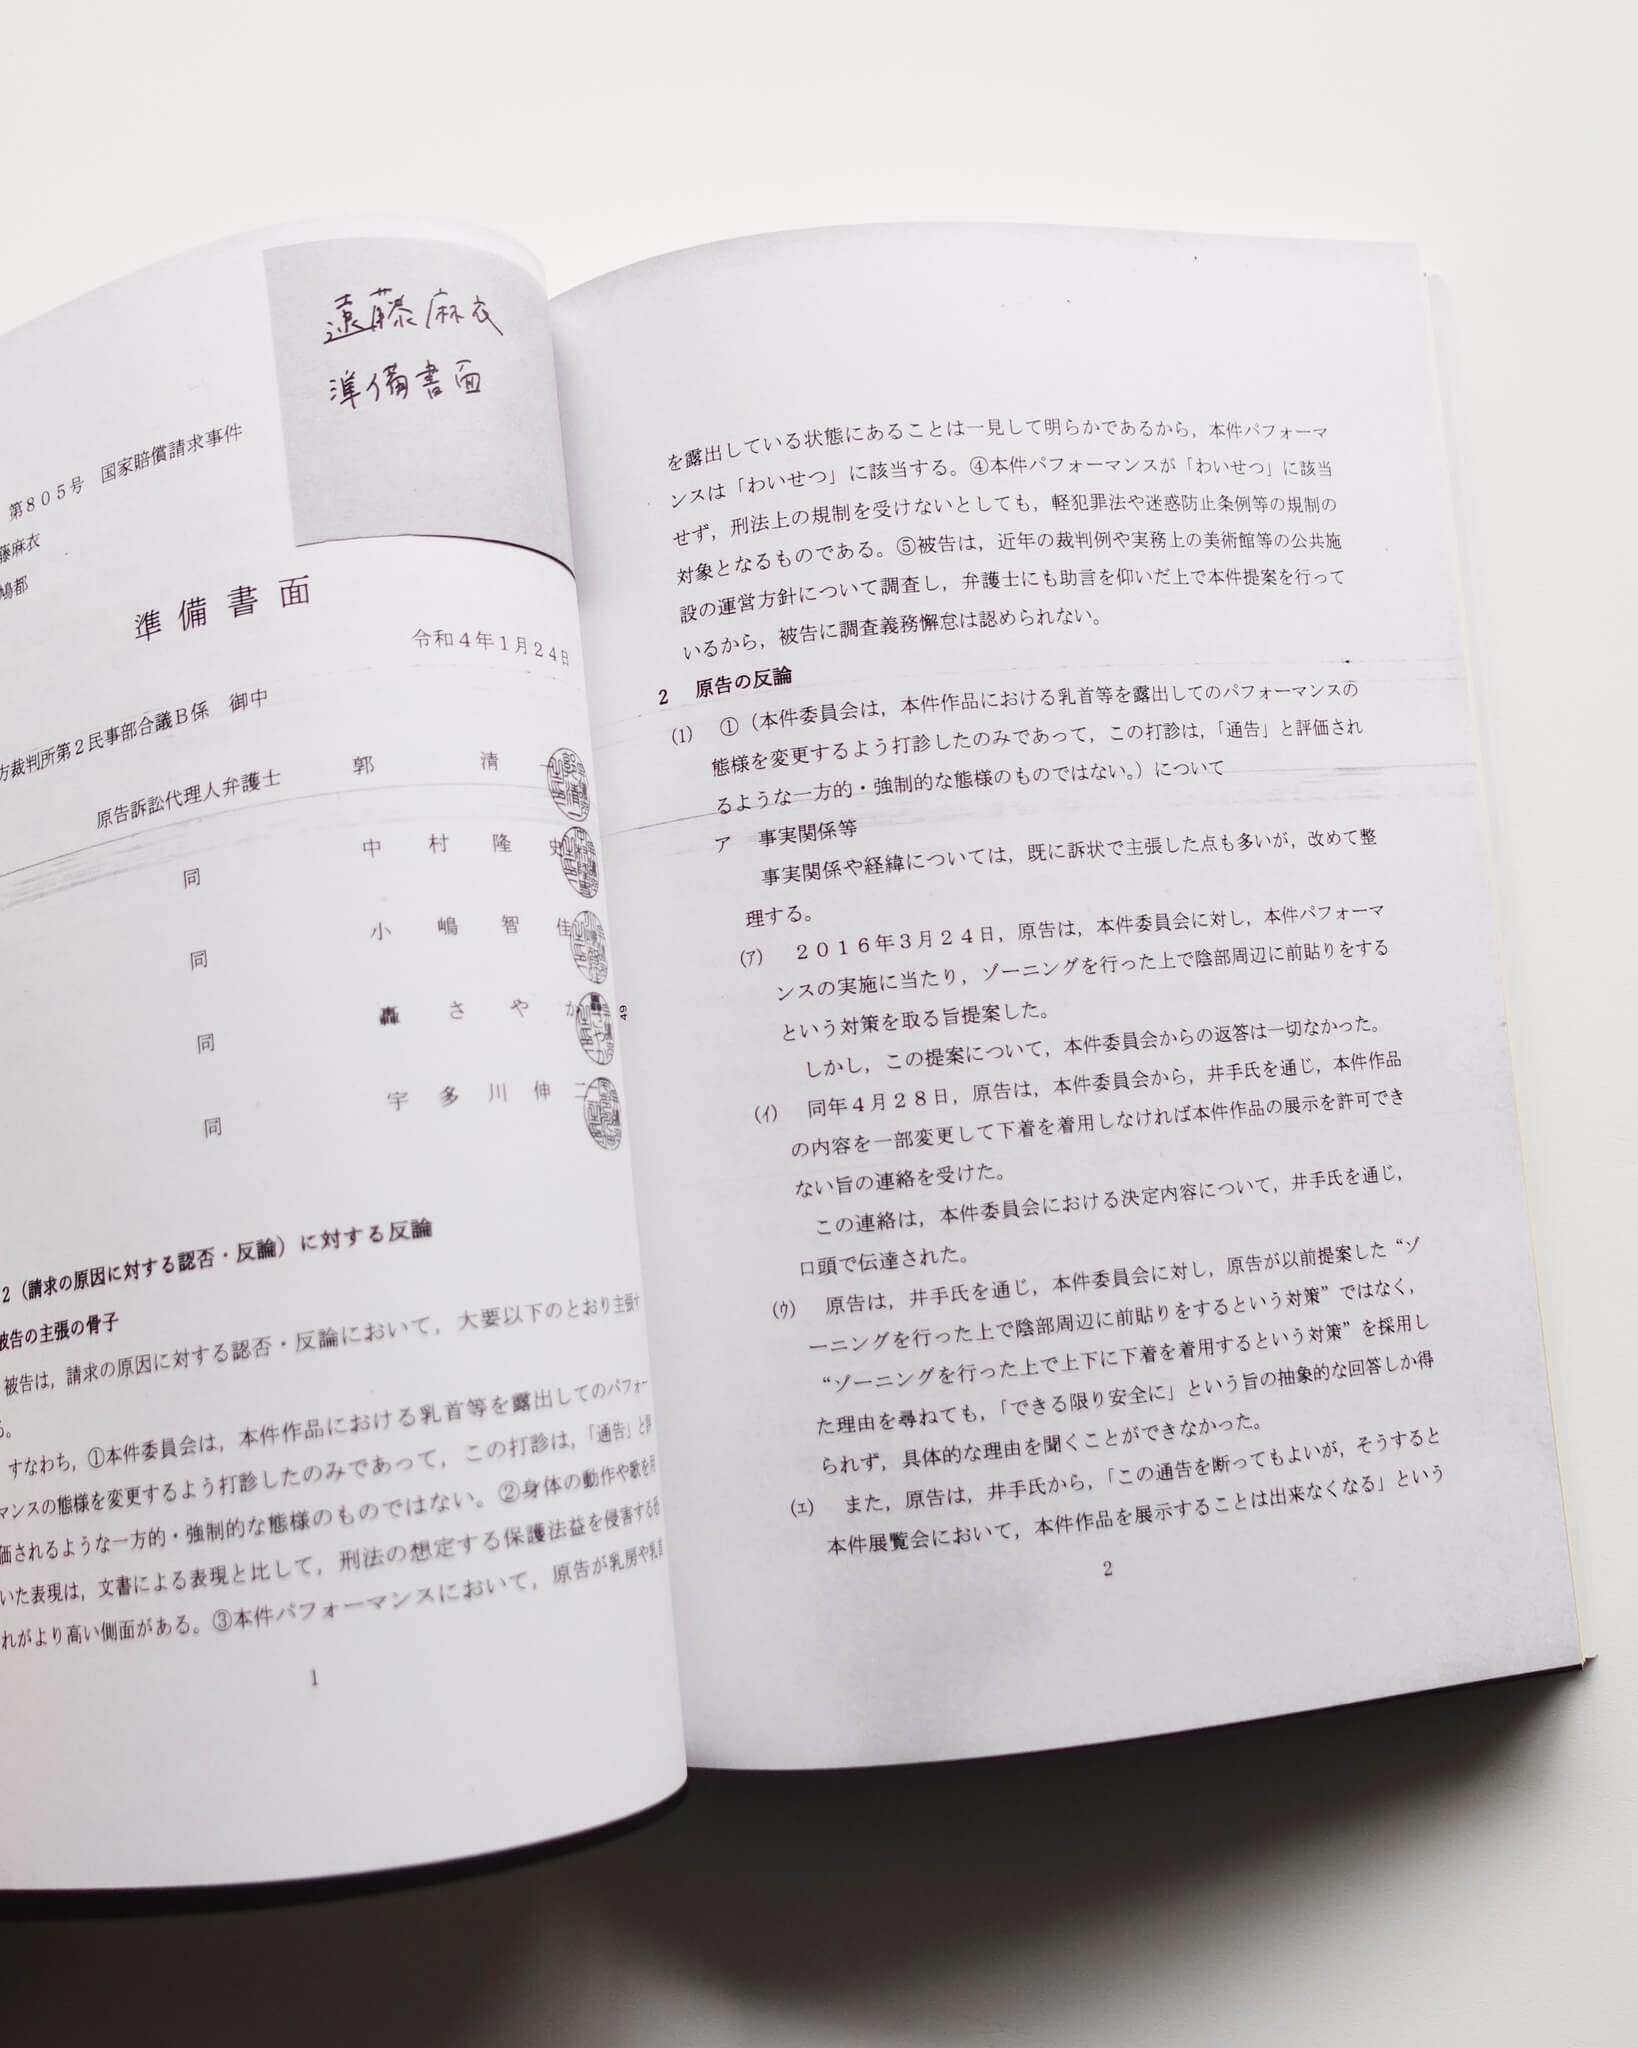 遠藤麻衣
準備書面
第８０５号　国家賠償請求事件
藤麻衣
準備書面
令和４年１月２４日
方裁判所第２民事部合議Ｂ係　御中
原告訴訟代理人弁護士　郭　清一
同　中村隆史
同　小嶋智佳
同　轟さやか
同　宇多川伸二
2（請求の原因に対する認否・反論）に対する反論
被告の主張の骨子
被告は，請求の原因に対する認否・反論において，大要以下のとおり主張す
る。
すなわち，①本件委員会は，本件作品における乳首等を露出してのパフォー
マンスの態様を変更するよう打診したのみであって，この打診は，「通告」と評
価されるような一方的・強制的な態様のものではない。②身体の動作や歌を用
いた表現は，文書による表現と比して，刑法の想定する保護法益を侵害する
れがより高い側面がある。③本件パフォーマンスにおいて，原告が乳房や乳首
1
49
を露出している状態にあることは一見して明らかであるから，本件パフォーマ
ンスは「わいせつ」に該当する。④本件パフォーマンスが「わいせつ」に該当
せず，刑法上の規制を受けないとしても，軽犯罪法や迷惑防止条例等の規制の
対象となるものである。⑤被告は，近年の裁判例や実務上の美術館等の公共施
設の運営方針について調査し，弁護士にも助言を仰いだ上で本件提案を行って
いるから，被告に調査義務懈怠は認められない。
2　原告の反論
⑴　①（本件委員会は，本件作品における乳首等を露出してのパフォーマンスの
態様を変更するよう打診したのみであって，この打診は，「通告」と評価され
るような一方的・強制的な態様のものではない。）について
ア　事実関係等
事実関係や経緯については，既に訴状で主張した点も多いが，改めて整
理する。
(ｱ)　２０１６年３月２４日，原告は，本件委員会に対し，本件パフォーマ
ンスの実施に当たり，ゾーニングを行った上で陰部周辺に前貼りをする
という対策を取る旨提案した。
しかし，この提案について，本件委員会からの返答は一切なかった。
(ｲ)　同年４月２８日，原告は，本件委員会から，井手氏を通じ，本件作品
の内容を一部変更して下着を着用しなければ本件作品の展示を許可でき
ない旨の連絡を受けた。
この連絡は，本件委員会における決定内容について，井手氏を通じ，
口頭で伝達された。
(ｳ)　原告は，井手氏を通じ，本件委員会に対し，原告が以前提案した“ゾ
ーニングを行った上で陰部周辺に前貼りをするという対策”ではなく，
“ゾーニングを行った上で上下に下着を着用するという対策”を採用し
た理由を尋ねても，「できる限り安全に」という旨の抽象的な回答しか得
られず，具体的な理由を聞くことができなかった。
(ｴ)　また，原告は，井手氏から，「この通告を断ってもよいが，そうすると
本件展覧会において，本件作品を展示することは出来なくなる」という
2